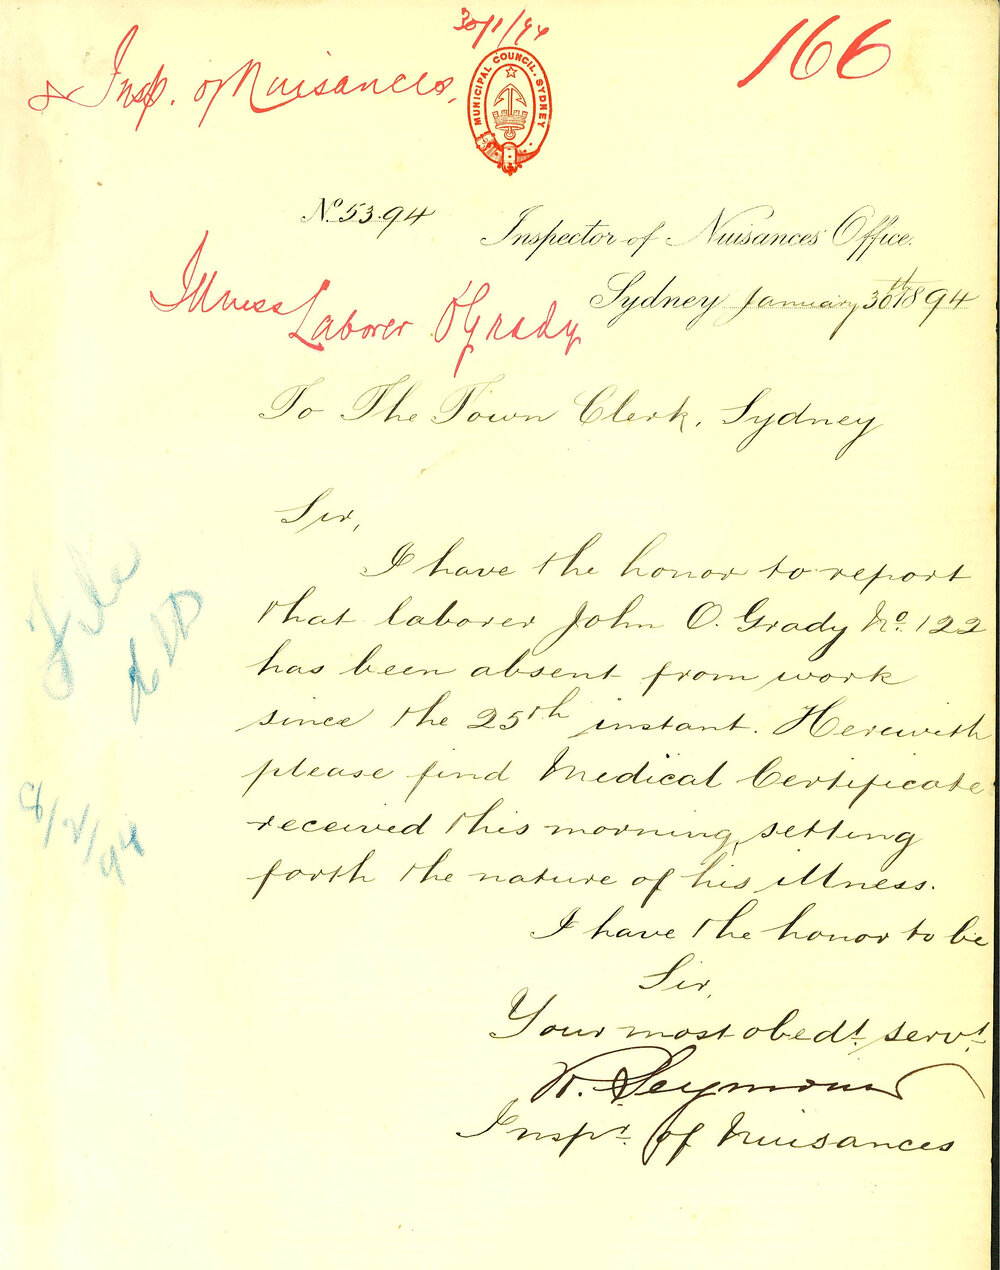 30/1/94
166
Insp. of Nuisances.
MUNICIPAL COUNCIL. SYDNEY
No. 53.94
Inspector of Nuisances Office.
Sydney January 30th 1894
Illness
Laborer O'Grady
To The Town Clerk, Sydney
Sir,
I have the honor to report
that laborer John O. Grady No. 122
has been absent from work
since the 25th instant. Herewith
please find Medical Certificate
received this morning, setting
forth the nature of his illness.
I have the honor to be
Sir,
Your most obedt. servt.
R. Seymour
Inspr. of Nuisances
File
8/2/94